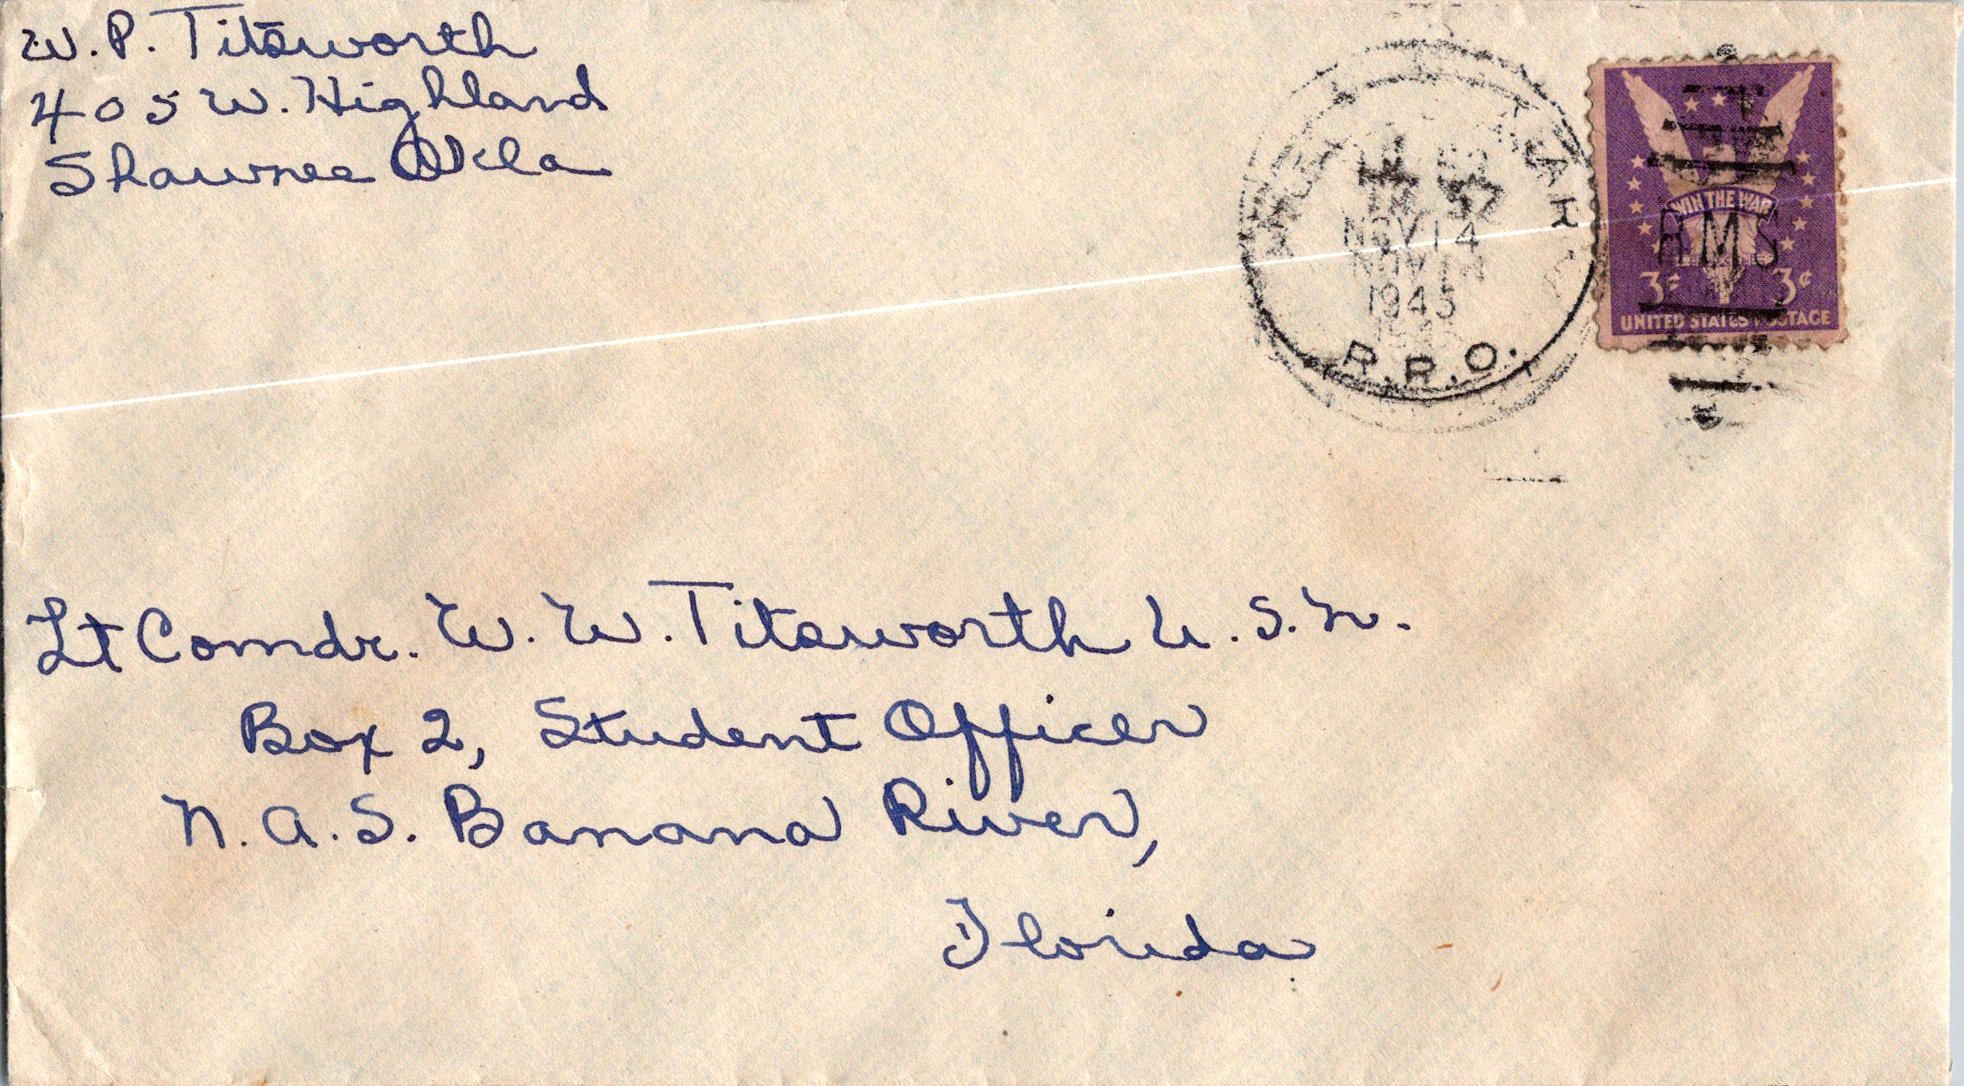 W. P. Titsworth
405 W. Highland
Shawnee Okla
NOV 14
1945
R.P.O.
WIN THE WAR
RMS
3¢ 3¢
UNITED STATES POSTAGE
Lt Comdr. W. W. Titsworth U.S.N.
Box 2, Student Officer
N.A.S. Banana River,
Florida